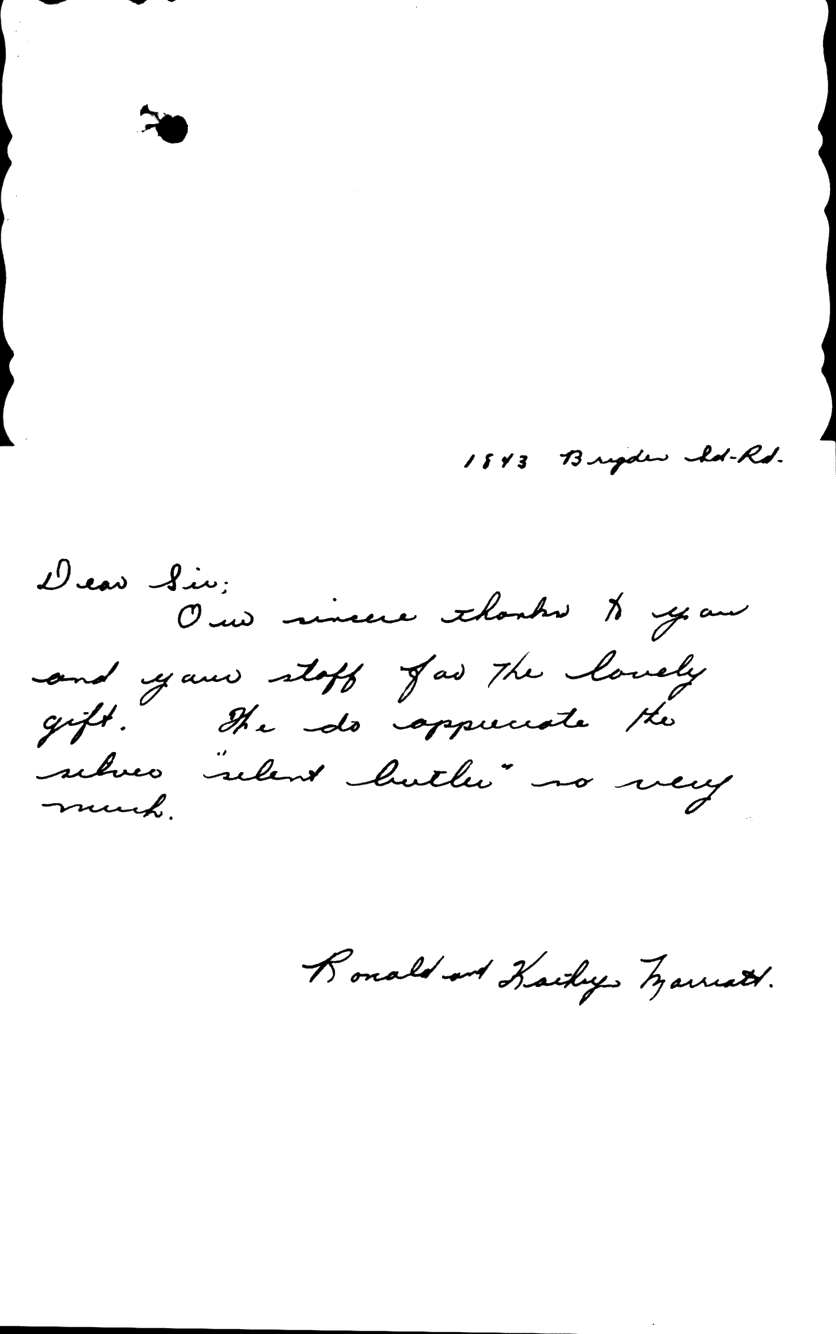 1843 Brigden Rd.
Dear Sir;
Our sincere thanks to you
and your staff for the lovely
gift. We do appreciate the
silver "silent butler" so very
much.
Ronald and Kathy Marriatt.